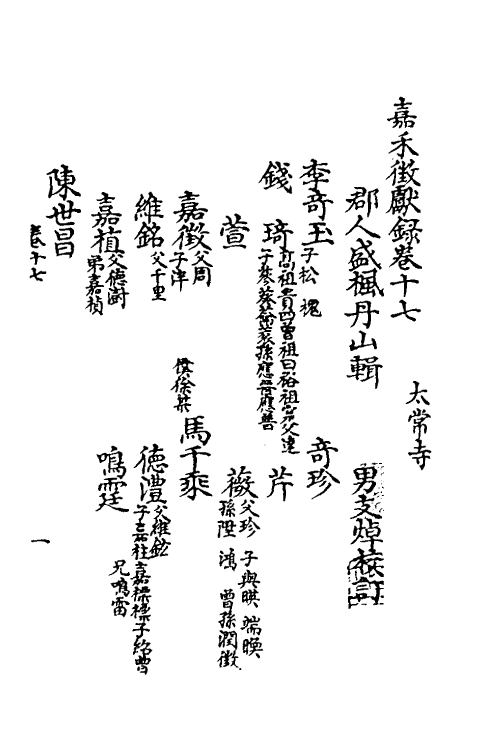 嘉禾徵獻錄卷十七
太常寺
郡人盛楓丹山輯
男支焯校訂
李奇玉 子松 槐
奇珍
錢琦 高祖貴四曾祖曰裕祖 父達
子 應 應善
芹
萱
薇 父珍 子與暎 端暎
孫陞 鴻 曾孫潤徵
嘉徵 父周
子津
侯徐桀
馬千乘
維銘 父千里
德澧 父維鉉
子嘉柱嘉 子紹曾
嘉植 父德澍
弟嘉楨
鳴霆 兄鳴雷
陳世昌
卷十七
一